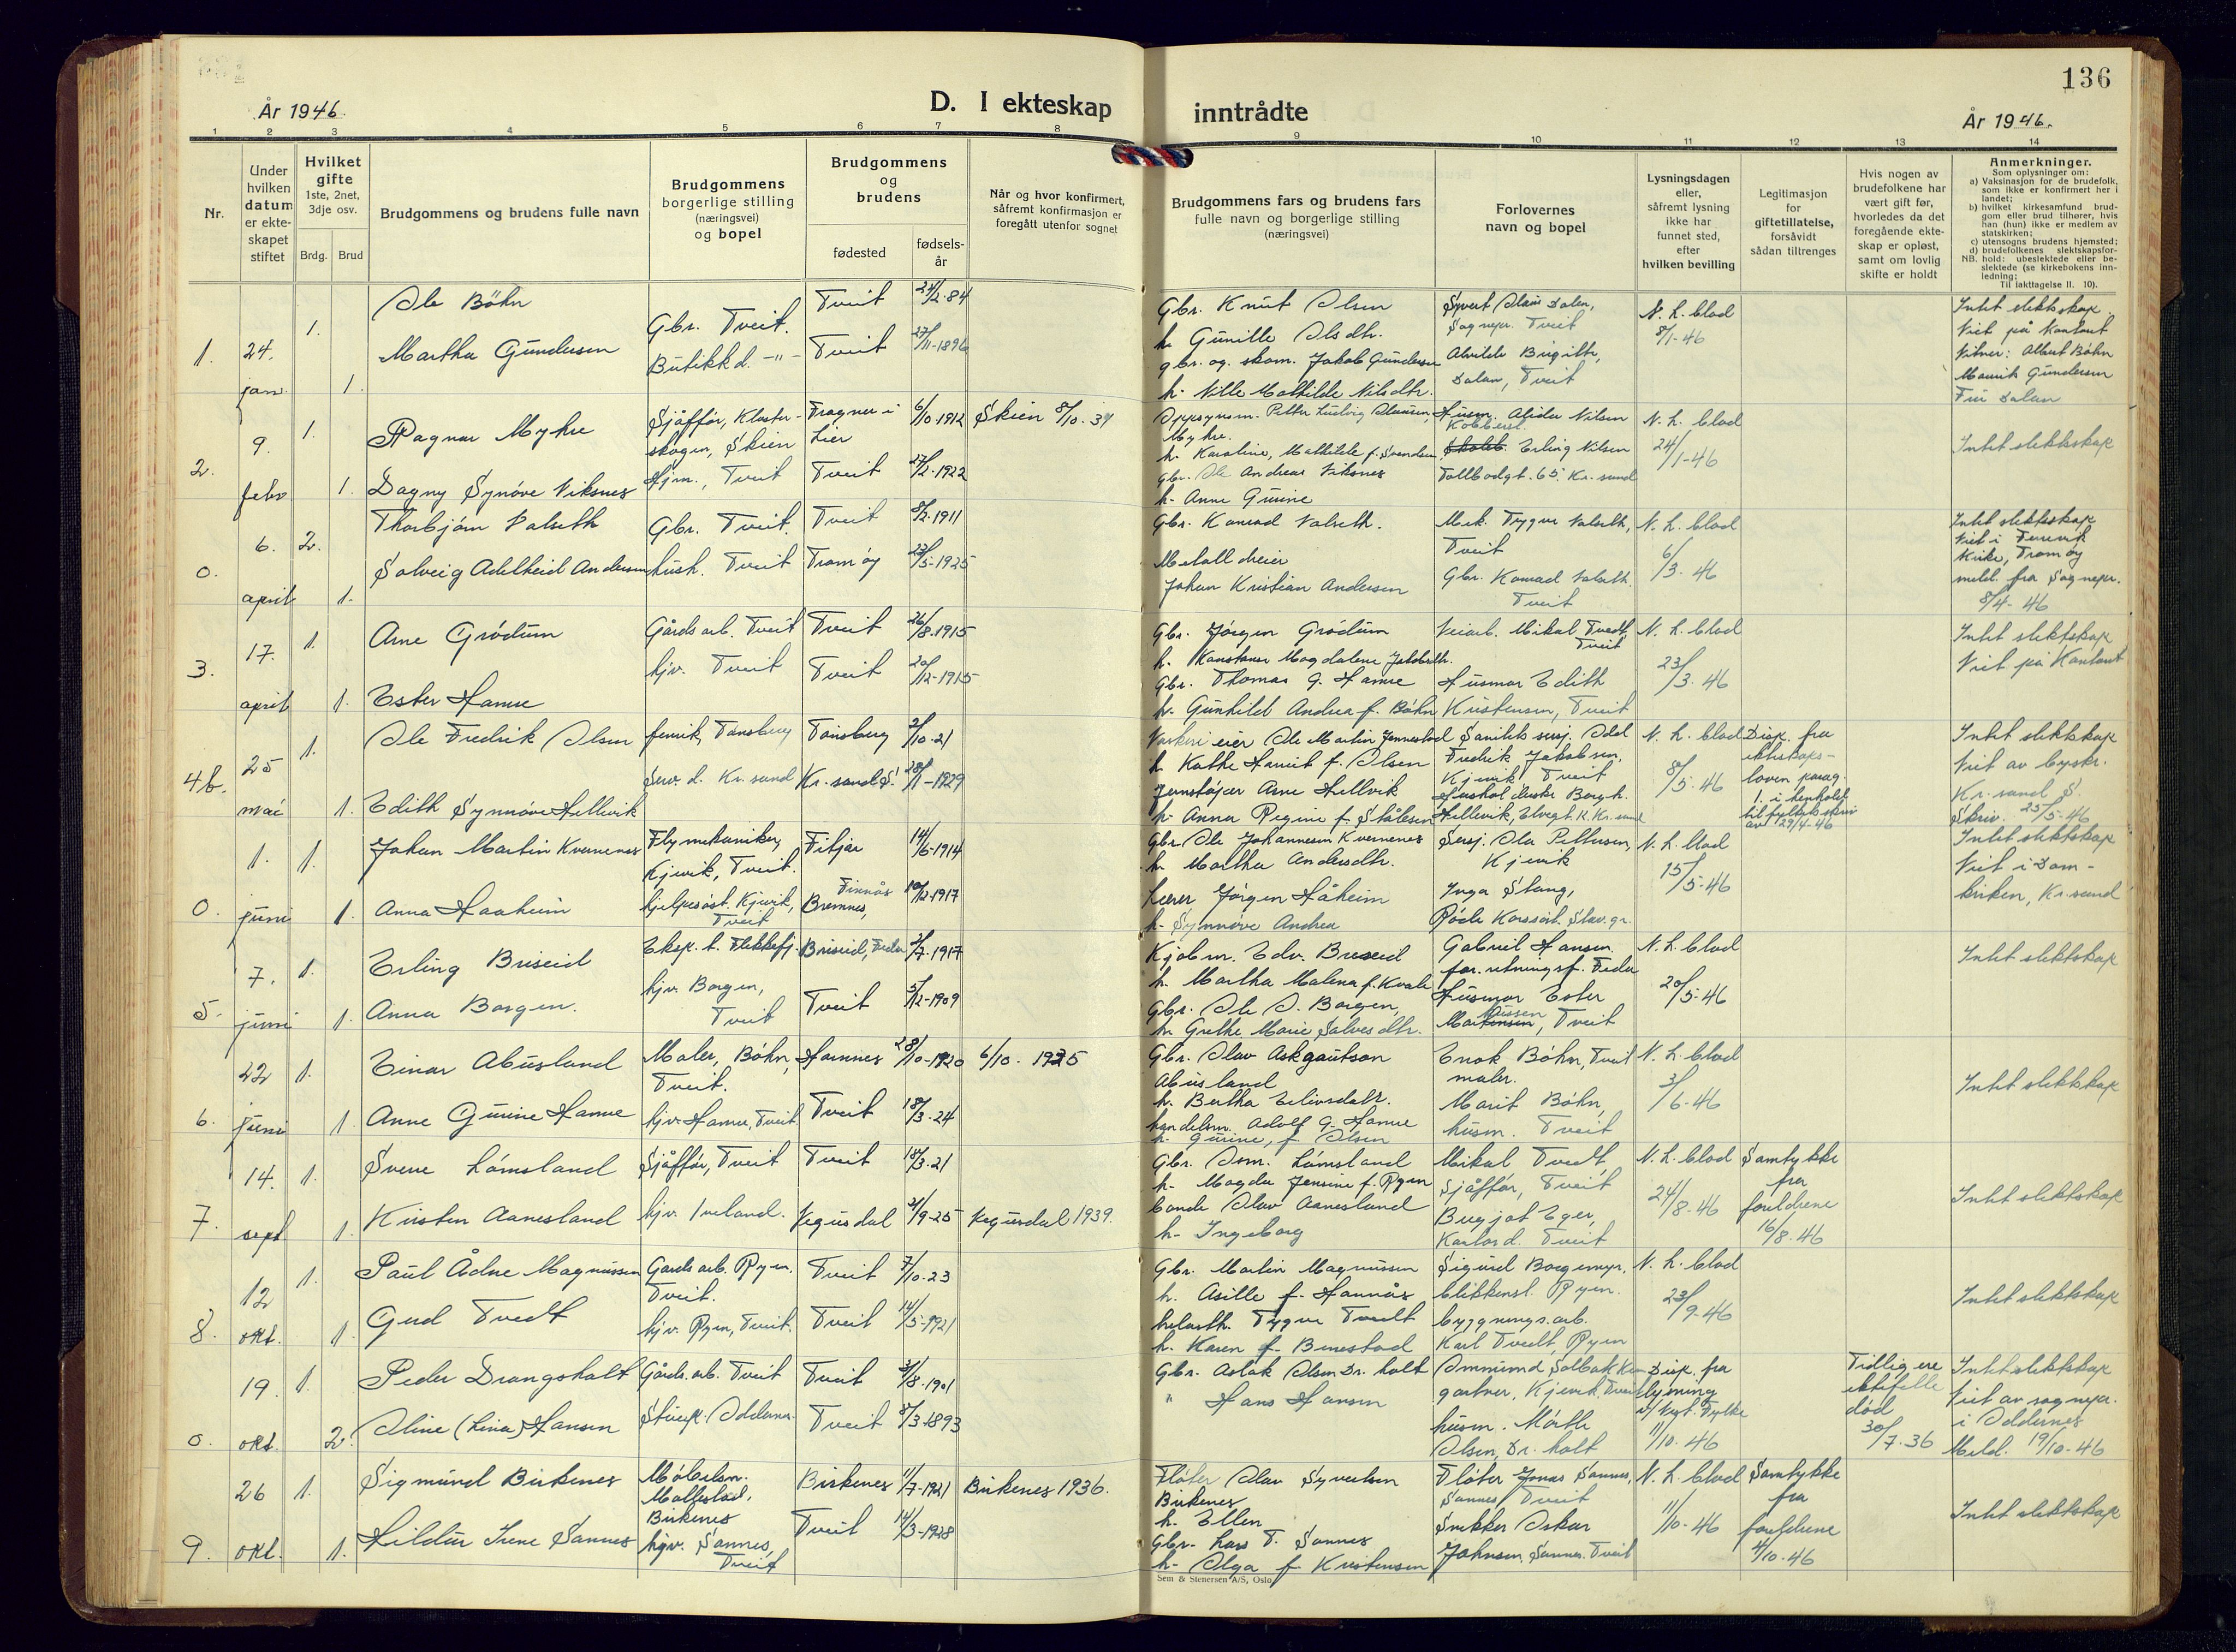 136
År 1946.
D. I ekteskap inntrådte
År 1946.
1 2 3 4 5 6 7 8 9 10 11 12 13 14
Nr.
Under hvilken datum er ekteskapet stiftet
Hvilket gifte
1ste, 2net, 3dje osv.
Brdg. Brud
Brudgommens og brudens fulle navn
Brudgommens borgerlige stilling (næringsvei) og bopel
Brudgommens og brudens
fødested
fødselsår
Når og hvor konfirmert, såfremt konfirmasjon er foregått utenfor sognet
Brudgommens fars og brudens fars fulle navn og borgerlige stilling (næringsvei)
Forlovernes navn og bopel
Lysningsdagen eller, såfremt lysning ikke har funnet sted, efter hvilken bevilling
Legitimasjon for giftetillatelse, forsåvidt sådan tiltrenges
Hvis nogen av brudefolkene har vært gift før, hvorledes da det foregående ekteskap er opløst, samt om lovlig skifte er holdt
Anmerkninger.
Som oplysninger om:
a) Vaksinasjon for de brudefolk, som ikke er konfirmert her i landet;
b) hvilket kirkesamfund brudgom eller brud tilhører, hvis han (hun) ikke er medlem av statskirken;
c) utensogns brudens hjemsted;
d) brudefolkenes slektskapsforhold: ubeslektede eller beslektede (se kirkebokens innledning;
NB. Til iakttagelse II. 10).
1. 24. jan. 1. 1.
Ole Bøhn Gbr. Tveit. Tveit 24/2-84
Martha Gundersen Butikkd. -"- Tveit 27/11-1896
Gbr. Knut Olsen
h. Gunille Olsdtr.
gbr. og skom. Jakob Gundersen
h. Nille Mathilde Nilsdtr.
Syvert Olaus Dalen,
Sognepr. Tveit
Alvilde Birgithe,
Dalen, Tveit
N. L. blad
8/1-46
Intet slektskap.
Viet på kontoret
Vitner: Albert Bøhn
Gundersen
Dalen
2. 9. febr 1. 1.
Ragnar Myhre Sjåffør, Klosterskogen, Skien Tragner i Lier 6/10-1912 Skien 8/10. 31
Dagny Synøve Viksnes Hjm., Tveit Tveit 27/2-1922
Oppsynsm. Petter Ludvig Olausen,
Myhre.
h. Karoline, Mathilde f. Svendsen
Gbr. Ole Andreas Viksnes
h. Anne Gurine
Husm. Alida Nilsen
Kobbersl.
Erling Nilsen
Tollbodgt. 65. Kr.sund
N. L. blad
24/1-46
Intet slektskap
0. 6. april 2. 1.
Thorbjørn Valseth Gbr. Tveit. Tveit 8/2-1911
Solveig Adelheid Andersen hush. Tveit Tromøy 23/5-1925
Gbr. Konrad Valseth.
Metalldreier
Johan Kristian Andersen
Mek. Tygve Valseth,
Tveit
Gbr. Konrad Valseth.
Tveit
N. L. blad
6/3-46
Intet slektskap
Viet i Færevik
kirke, Tromøy
meld. fra Sognepr.
8/4-46
3. 17. april 1. 1.
Arne Grødum Gårdsarb. Tveit Tveit 26/8-1915
Ester Hamre hjv. Tveit Tveit 20/12-1915
Gbr. Jørgen Grødum
h. Konstanse Magdalene Jakobsdtr.
Gbr. Thomas G. Hamre
h. Gunhild Andrea f. Bøhn
Veiarb. Mikal Tvedt,
Tveit
Husmor Edith
Kristensen, Tveit
N. L. blad
23/3-46
Intet slektskap
Viet på Kontoret
4b. 25 mai 1. 1.
Ole Fredrik Olsen fenrik, Tønsberg Tønsberg 2/10-21
Edith Synnøve Hellevik Serv. d. Kr.sand Kr.sand S. 28/1-1929
eier Ole Martin Jennestad
h. Kathe Harriet f. Olsen
Arne Hellvik
h. Anna Regine f. Stålesen
Sanitets sersj. Odd
Fredrik Jakobsen.
Kjevik Tveit
Borgh.
Hellevik, Elvegt. Kr.sand
N. L. blad
8/5-46
Disp. fra
ekteskaps-
loven parag.
1. i henhold
til fylkets skriv
av 29/4-46
Intet slektskap
Viet av byskr.
Kr.sand S.
Skriv. 25/5-46
0. 1. juni 1. 1.
Johan Martin Kvernenes Flymekaniker, Kjevik, Tveit. Fitjar 14/6-1914
Anna Haaheim hjelpesøst. Kjevik, Tveit Finnås Bremnes, 10/12-1917
Gbr. Ole Johannesen Kvernenes
h. Martha Andersdtr.
Lærer Jørgen Håheim
h. Synnøve Andrea
Sersj. Ola Pettersen,
Kjevik
Inga Stang,
Røde Korssøst. Stav.gr.
N. L. blad
15/5-46
Intet slektskap
Viet i Dom-
kirken, Kr.sand
5. 7. juni 1. 1.
Erling Briseid Eksp. b. Flekkefj. Briseid, Feda 2/7-1917
Anna Borgen. hjv. Borgen, Tveit Tveit 5/12-1909
Kjøbm. Edv. Breseid
h. Martha Malena f. Kvale
Gbr. Ole O. Borgen,
h. Grethe Marie Salvesdtr.
Gabriel Hansen
forretningsf. Feda
Husmor Ester
Martinsen, Tveit
N. L. blad
20/5-46
Intet slektskap
6. 22 juni 1. 1.
Einar Abusland Maler, Bøhn, Tveit. Hornnes 28/10-1920 6/10. 1935
Anne Gurine Hamre hjv. Hamre, Tveit Tveit 18/3-24
Gbr. Olav Askgautson
Abusland
h. Bertha Eilivsdatr.
handelsm. Adolf G. Hamre
h. Gurine, f. Olsen
Enok Bøhn, Tveit
maler.
Marit Bøhn,
husm. Tveit
N. L. blad
3/6-46
Intet slektskap
7. 14. sept 1. 1.
Svene Lømsland Sjåffør, Tveit Tveit 18/3-21
Kirsten Aanesland hjv. Iveland. Vegusdal 2/9-25 Vegusdal 1939.
Gbr. Osm. Lømsland
h. Magda Jensine f. Ryen
bonde Olav Aanesland
h. Ingeborg
Mikal Tvedt,
Sjåffør, Tveit
Bugjot Eger,
Kontord. Tveit
N. L. blad
24/8-46
Samtykke
fra
foreldrene
16/8-46
Intet slektskap
8. 12 okt. 1. 1.
Paul Ådne Magnussen Gårdsarb. Ryen. Tveit. Tveit 7/10-23
Gerd Tvedt hjv. Ryen, Tveit. Tveit 14/5-1921
Gbr. Martin Magnussen
h. Asille f. Hannås
Tygve Tvedt
h. Karen f. Birkestad
Sigurd Borgemyr,
blikkensl. Ryen.
bygningsarb.
Karl Tvedt, Ryen
N. L. blad
23/9-46
Intet slektskap
0. 19. okt. 1. 2.
Peder Drangsholt Gårdsarb. Tveit Tveit 3/8-1901
Oline (Lina) Hansen Oddernes. Tveit 8/3-1893
Gbr. Aslak Olsen Dr. holt
" Hans Hansen
Ommund Solbakken
gartner, Kjevik, Tveit
husm. Marthe
Olsen, Dr. holt
Disp. fra
lysning
v/ Vgt. Fylke
11/10-46
Tidligere
ektefelle
død
30/7-36
Intet slektskap
Viet av sognepr.
i Oddernes
Meld. 19/10-46
9. 26 okt. 1. 1.
Sigmund Birkenes Møbelsn. Mollestad, Birkenes Birkenes 11/7-1921 Birkenes 1936.
Hildur Irene Sannes hjv. Sannes, Tveit Tveit 14/3-1928
Fløter Olav Syvertsen
Birkenes
h. Ellen
Gbr. Lars T. Sannes
h. Olga f. Kristensen
Fløter Jonas Sannes,
Sannes, Tveit
Snekker Oskar
Johnsen, Sannes. Tveit
N. L. blad
11/10-46
Samtykke
fra
foreldrene
4/10-46
Intet slektskap
Sem & Stenersen A/S, Oslo